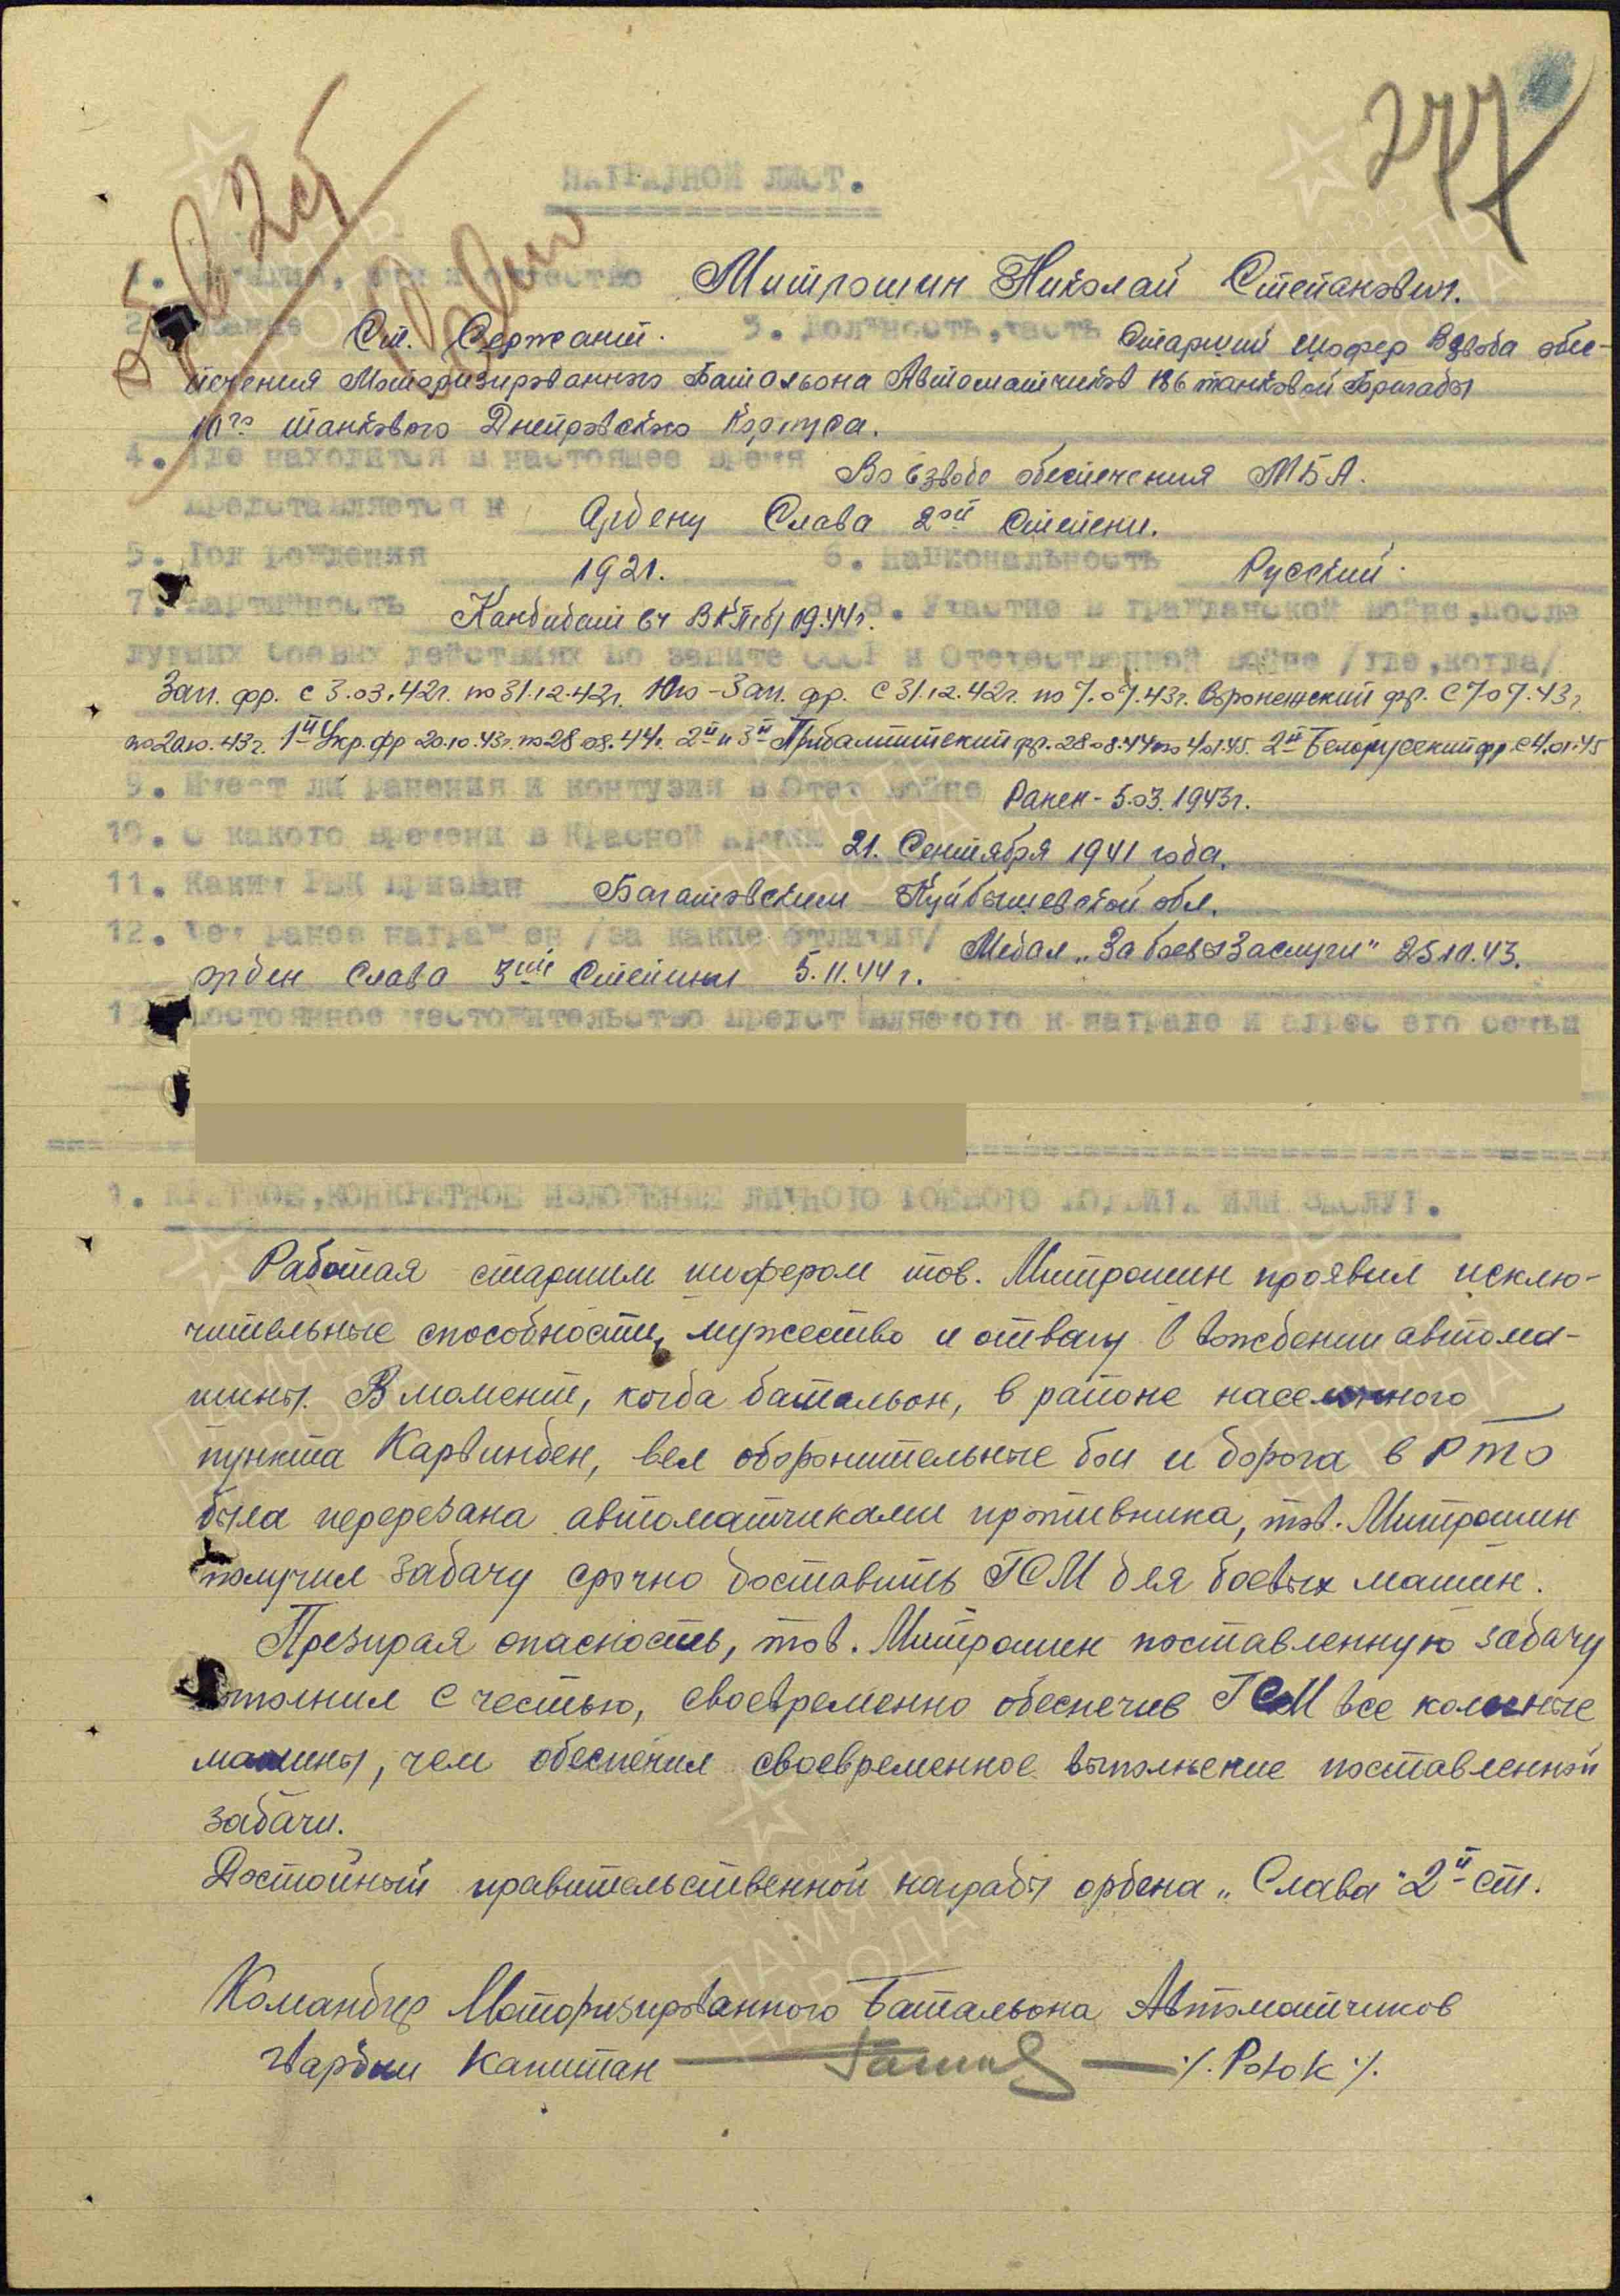 277
НАГРАДНОЙ ЛИСТ.
1. Фамилия, имя и отчество Митрошин Николай Степанович.
2. Звание Ст. Сержант. 3. Должность, часть Старший шофер Взвода обес-
печения Моторизированного Батальона Автоматчиков 186 танковой Бригады
10го танкового Днепровского Корпуса.
4. Где находится в настоящее время Во взводе обеспечения МБА.
Представляется к Ордену Слава 2ой Степени.
5. Год рождения 1921. 6. Национальность Русский.
7. Партийность Кандидат вч ВКП(б) 19.44г. 8. Участие в гражданской войне, после
дующих боевых действиях по защите СССР и Отечественной войне /где, когда/
Зап. фр. с 3.03.42г. по 31.12.42г. Юго-Зап. фр. с 31.12.42г. по 7.07.43г. Воронежский фр. с 7.07.43г
по 20.10.43г. 1й Укр. фр 20.10.43г. по 28.08.44г. 2й и 3й Прибалтитский фр. 28.08.44 по 4.01.45. 2й Белорусский фр. с 4.01.45
9. Имеет ли ранения и контузии в Отеч войне Ранен - 5.03.1943г.
10. С какого времени в Красной Армии 21. Сентября 1941 года.
11. Каким РВК призван Богатовским Куйбышевской обл.
12. Чем ранее награжден /за какие отличия/ Медал „За боевы Заслуги" 25.10.43.
орден Слава 3ей Степины 5.11.44г.
13. Постоянное местожительство представляемого к награде и адрес его семьи
1. КРАТКОЕ, КОНКРЕТНОЕ ИЗЛОЖЕНИЕ ЛИЧНОГО БОЕВОГО ПОДВИГА ИЛИ ЗАСЛУГ.
Работая старшим шофером тов. Митрошин проявил исклю-
чительные способности, мужество и отвагу в вождении автома-
шины. В момент, когда батальон, в районе населенного
пункта Карвинден, вел оборонительные бои и дорога в РТО
была перерезана автоматчиками противника, тов. Митрошин
получил задачу срочно доставить ГСМ для боевых машин.
Презирая опасность, тов. Митрошин поставленную задачу
выполнил с честью, своевременно обеспечив ГСМ все колесные
машины, чем обеспечил своевременное выполнение поставленной
задачи.
Достойный правительственной награды ордена „Слава" 2й ст.
Командир Моторизированного Батальона Автоматчиков
Гвардии Капитан /. Рогок /.
ПАМЯТЬ НАРОДА